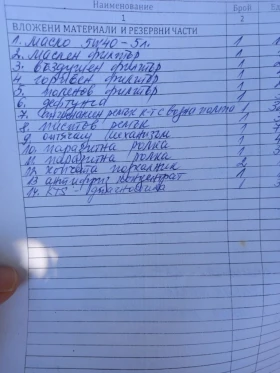 Наименование Брой
1 2
ВЛОЖЕНИ МАТЕРИАЛИ И РЕЗЕРВНИ ЧАСТИ
1. Масло 5W40 - 5л. 1
2. Маслен филтър 1
3. въздушен филтър 1
4. горивен филтър 1
5. поленов филтър 1
6.
7. ремък к-т с водна помпа 1
8. пистов ремък 1
9. 1
10. паразитна ролка 1
11. паразитна ролка 1
12. 2
13. антифриз концентрат 1
14. KTS - диагностика